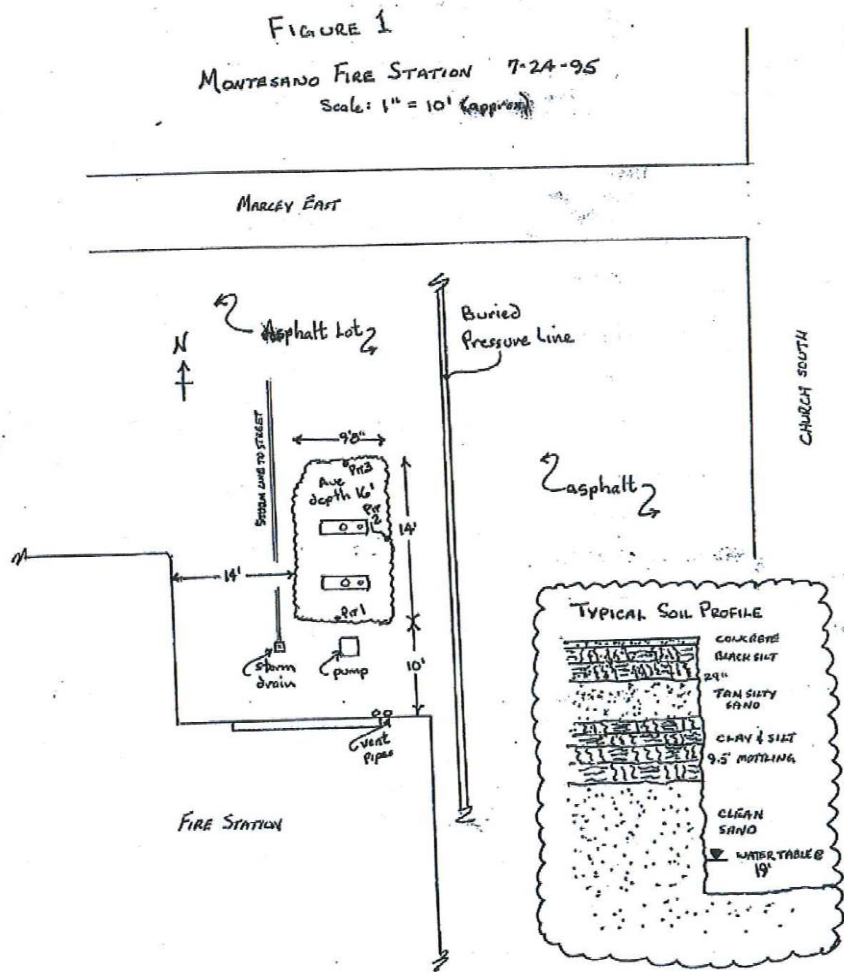 FIGURE 1
MONTESANO FIRE STATION 7-24-95
Scale: 1" = 10' (approx)
MARCEY EAST
Asphalt Lot
Buried
Pressure Line
N
CHURCH SOUTH
STORM LINE TO STREET
9'8"
Pit 3
Ave
depth 16'
Pit
2
14'
asphalt
14'
Pit 1
10'
storm
drain
pump
vent
pipes
FIRE STATION
TYPICAL SOIL PROFILE
CONCRETE
BLACK SILT
29"
TAN SILTY
SAND
CLAY & SILT
9.5' MOTTLING
CLEAN
SAND
WATER TABLE @
19'